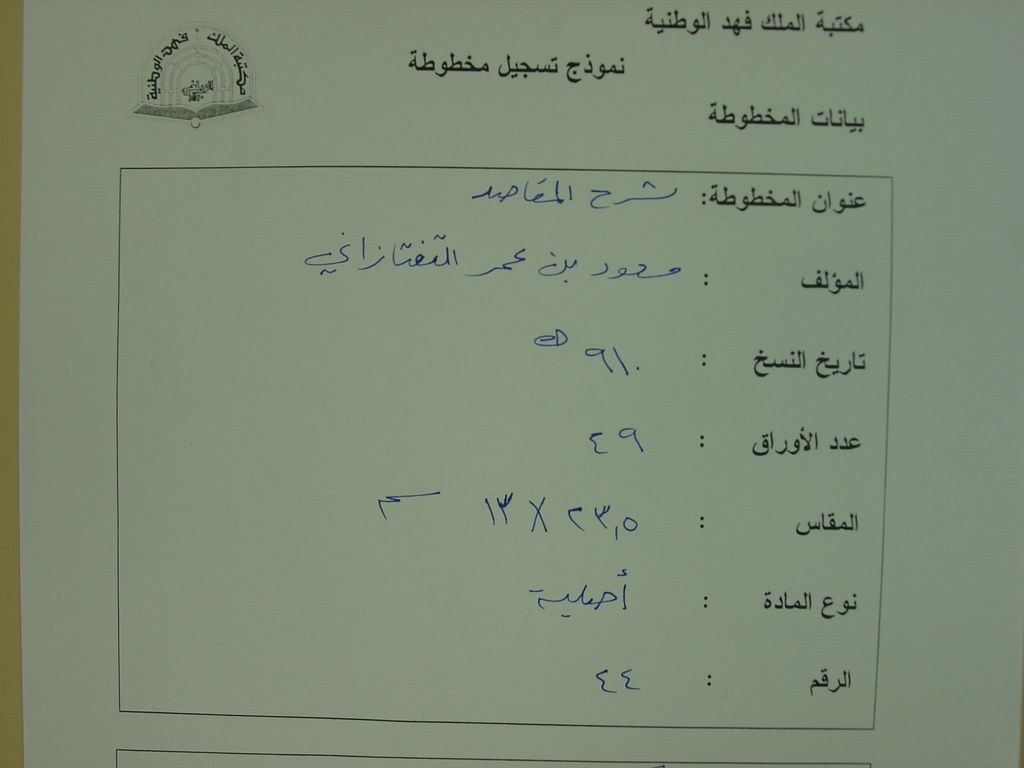 مكتبة الملك فهد الوطنية
مكتبة الملك فهد الوطنية
نموذج تسجيل مخطوطة
بيانات المخطوطة
عنوان المخطوطة: شرح المقاصد
المؤلف : مسعود بن عمر التفتازاني
تاريخ النسخ : ٩١٠ هـ
عدد الأوراق : ٤٩
المقاس : ٢٣,٥ X ١٣ سم
نوع المادة : أصلية
الرقم : ٤٤